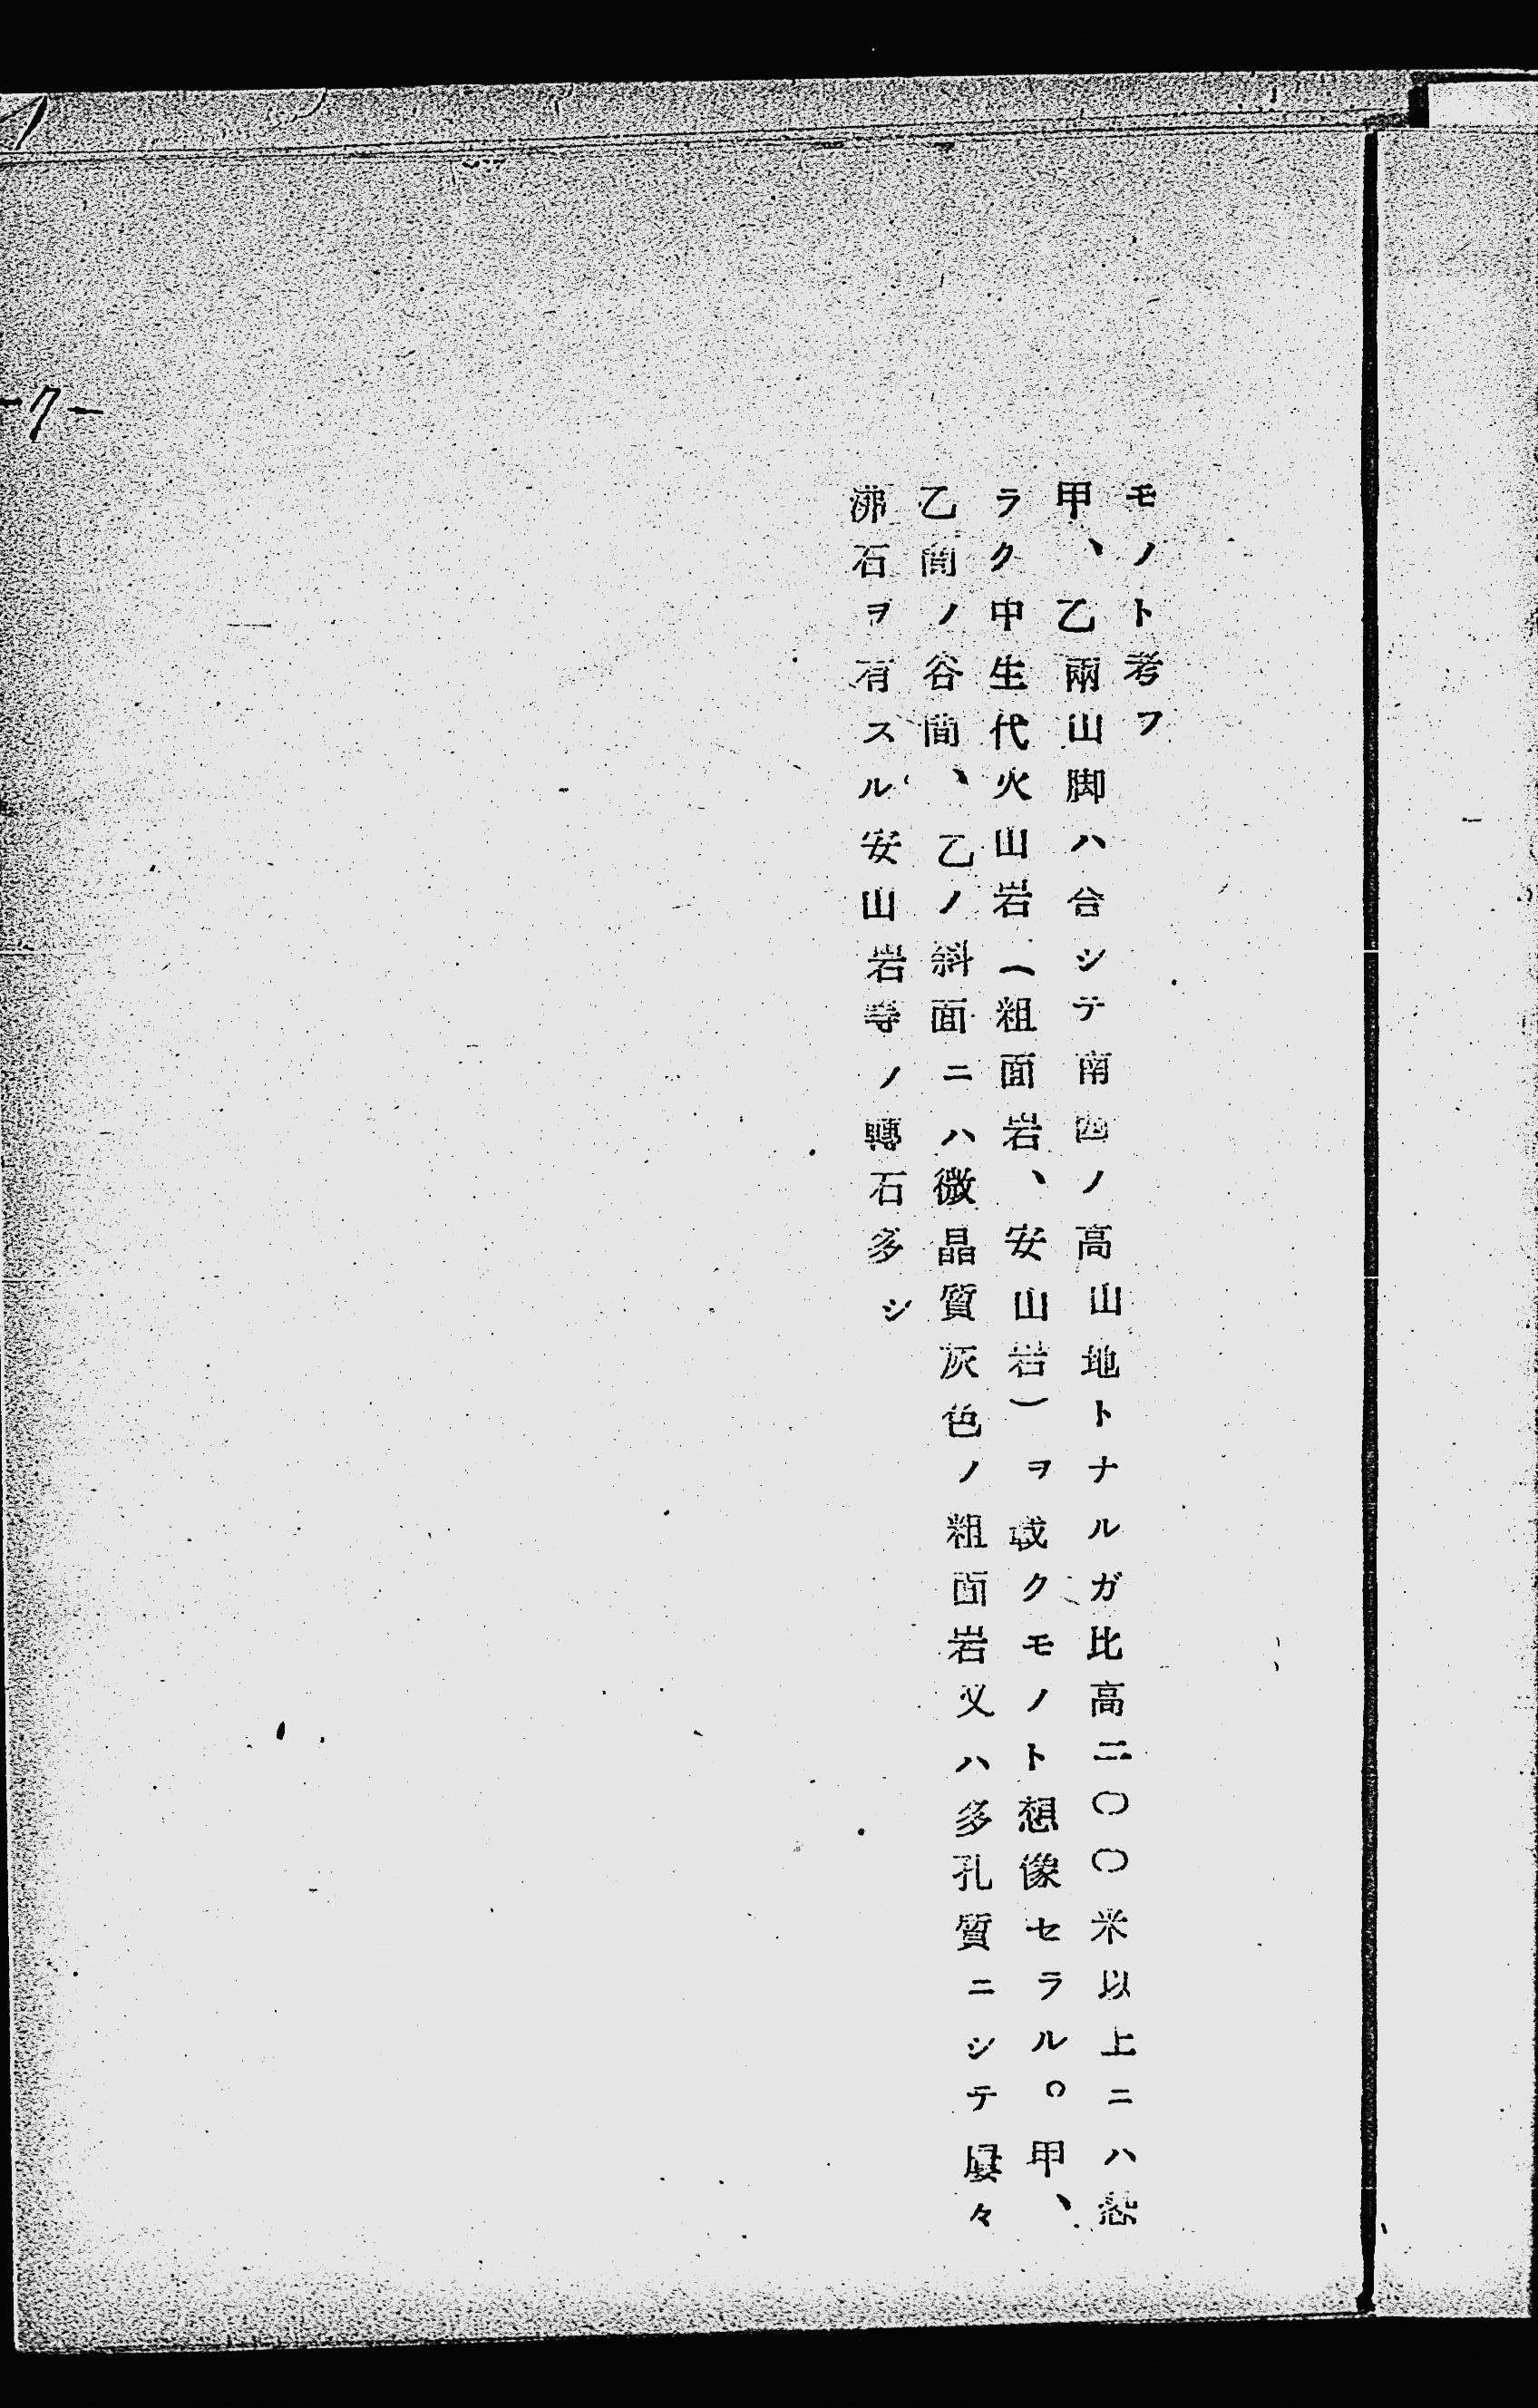 モノト考フ
甲、乙兩山脚ハ合シテ南西ノ高山地トナルガ比高二〇〇米以上ニハ恐
ラク中生代火山岩(粗面岩、安山岩)ヲ戴クモノト想像セラル。甲、
乙間ノ谷間、乙ノ斜面ニハ微晶質灰色ノ粗面岩又ハ多孔質ニシテ屡々
沸石ヲ有スル安山岩等ノ轉石多シ
-7-